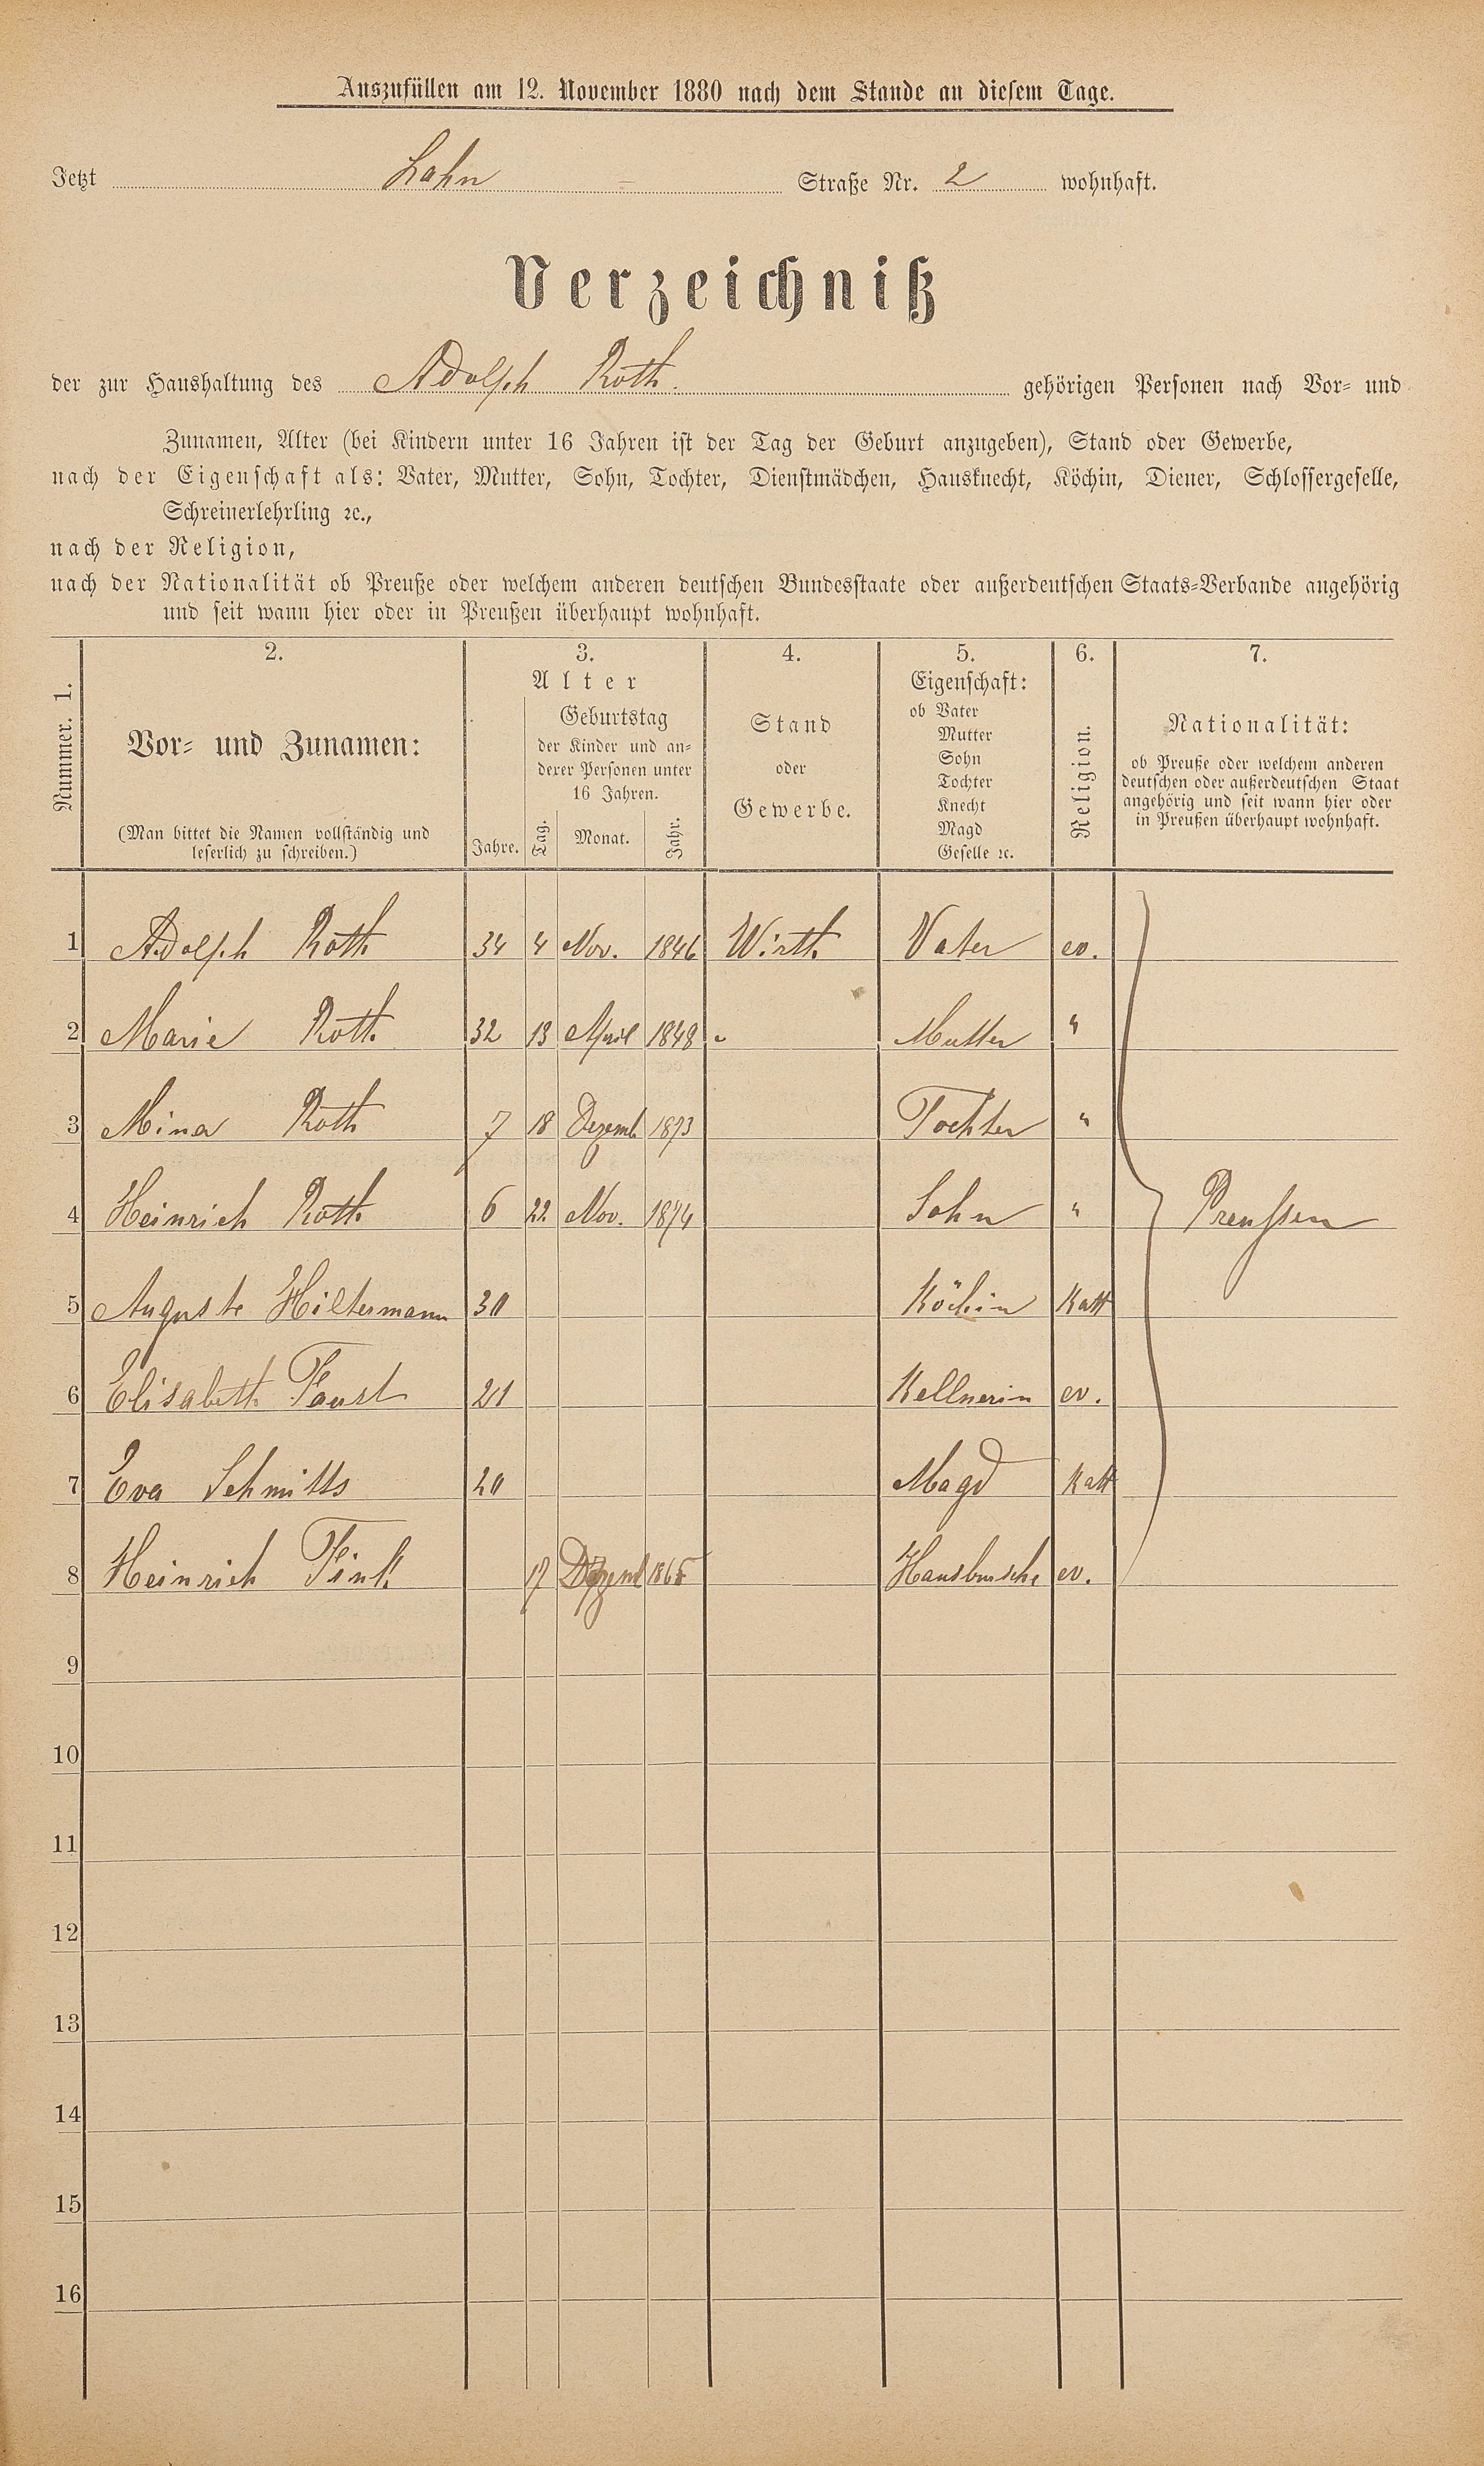 Auszufüllen am 12. November 1880 nach dem Stande an diesem Tage.
Jetzt Lahn - Straße Nr. 2 wohnhaft.
Verzeichniß
der zur Haushaltung des Adolph Roth. gehörigen Personen nach Vor- und
Zunamen, Alter (bei Kindern unter 16 Jahren ist der Tag der Geburt anzugeben), Stand oder Gewerbe,
nach der Eigenschaft als: Vater, Mutter, Sohn, Tochter, Dienstmädchen, Hausknecht, Köchin, Diener, Schlossergeselle,
Schreinerlehrling ꝛc.,
nach der Religion,
nach der Nationalität ob Preuße oder welchem anderen deutschen Bundesstaate oder außerdeutschen Staats-Verbande angehörig
und seit wann hier oder in Preußen überhaupt wohnhaft.
Nummer. 1.
2.
Vor- und Zunamen:
(Man bittet die Namen vollständig und
leserlich zu schreiben.)
3.
Alter
Jahre.
Geburtstag
der Kinder und an-
derer Personen unter
16 Jahren.
Tag. Monat. Jahr.
4.
Stand
oder
Gewerbe.
5.
Eigenschaft:
ob Vater
Mutter
Sohn
Tochter
Knecht
Magd
Geselle ꝛc.
6.
Religion.
7.
Nationalität:
ob Preuße oder welchem anderen
deutschen oder außerdeutschen Staat
angehörig und seit wann hier oder
in Preußen überhaupt wohnhaft.
1 Adolph Roth 34 4 Nov. 1846 Wirth Vater ev.
2 Marie Roth 32 13 April 1848 " Mutter "
3 Mina Roth 7 18 Dezemb 1873 Tochter "
4 Heinrich Roth 6 22 Nov. 1874 Sohn " Preußen
5 Auguste Hiltermann 30 Köchin Kath
6 Elisabeth Faust 21 Kellnerin ev.
7 Eva Schmitts 20 Magd Kath
8 Heinrich Fink 17 Dezemb 1865 Hausbursche ev.
9
10
11
12
13
14
15
16